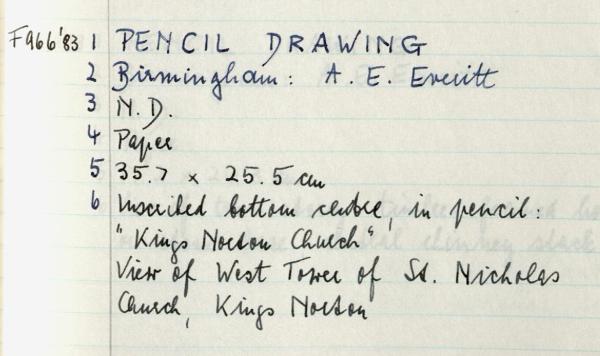 F966'83 1 PENCIL DRAWING
2 Birmingham: A. E. Everitt
3 N.D.
4 Paper
5 35.7 x 25.5 cm
6 Inscribed bottom centre, in pencil:
"Kings Norton Church"
View of West Tower of St. Nicholas
Church, Kings Norton